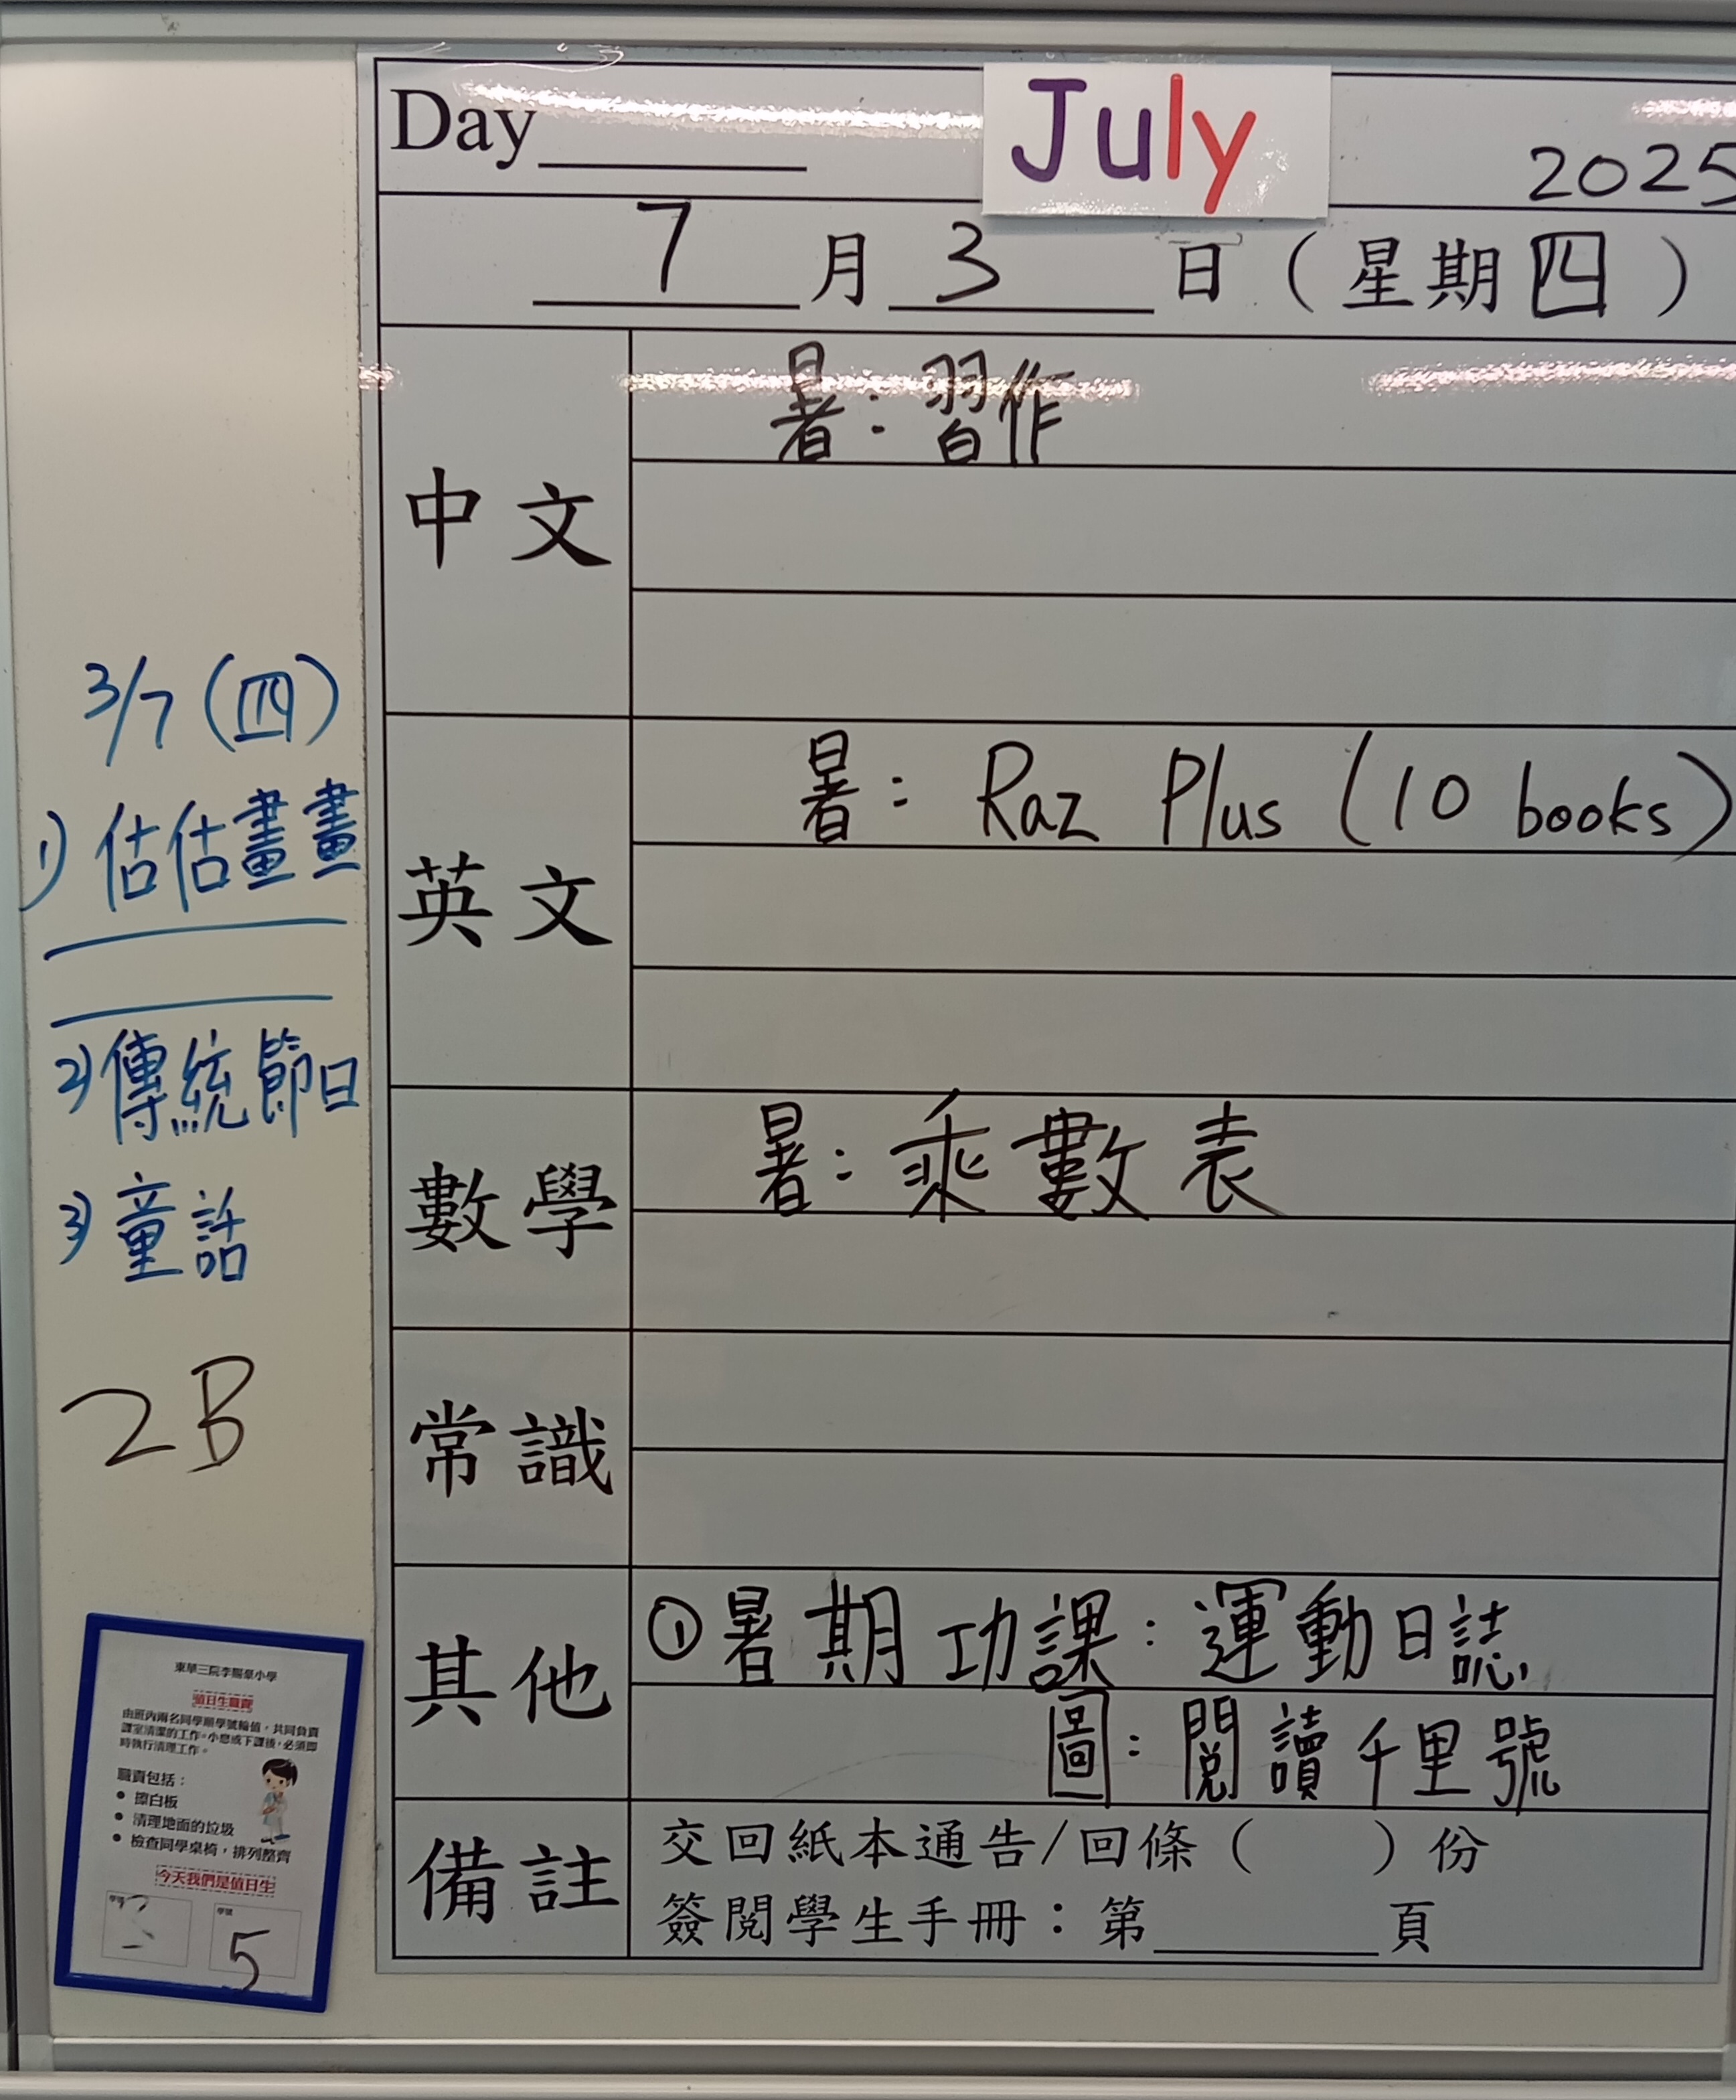 Day
July
2025
7月3日（星期四）
中文
暑：習作
英文
暑：Raz Plus (10 books)
數學
暑：乘數表
常識
其他
①暑期功課：運動日誌
圖：閱讀千里號
備註
交回紙本通告/回條（　　）份
簽閱學生手冊：第　　頁
3/7（四）
1) 估估畫畫
2) 傳統節日
3) 童話
2B
東華三院李賜豪小學
值日生職責
由班內兩名同學順學號輪值，共同負責
課室清潔的工作。小息或下課後，必須即
時執行清理工作。
職責包括：
• 擦白板
• 清理地面的垃圾
• 檢查同學桌椅，排列整齊
今天我們是值日生
學號
學號
5